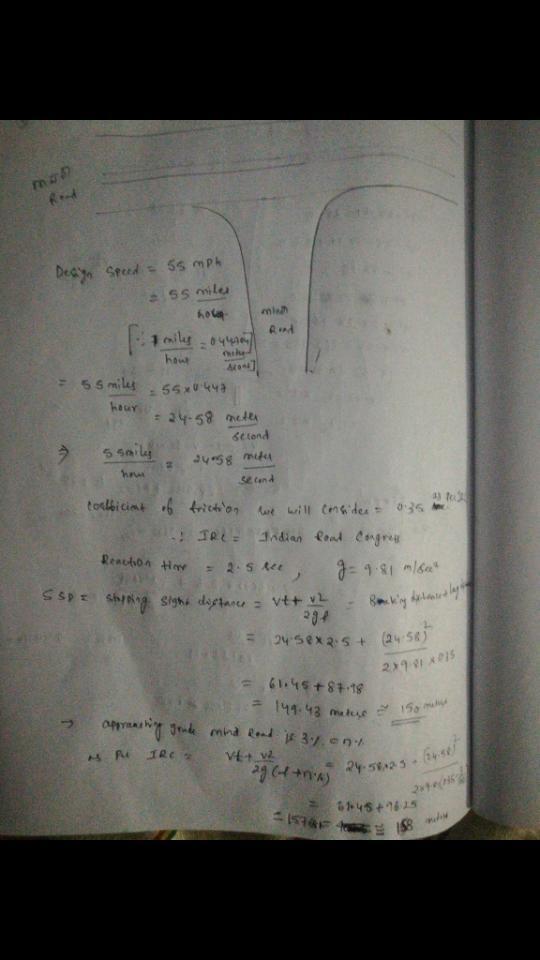 Road
Design speed = 55 mph
= 55 miles/hour
minor
Road
[∵ 1 miles/hour = meter/second]
= 55 miles/hour = 55 × 0.447
= 24.58 meter/second
⇒ 55 miles/hour = 24.58 meter/second
coefficient of friction we will consider = 0.35 as per
∵ IRC = Indian Road Congress
Reaction time = 2.5 sec, g = 9.81 m/sec²
SSD = stopping sight distance = vt + v²/2gf = Breaking distance + lag
= 24.58 × 2.5 + (24.58)²/2×9.81×0.35
= 61.45 + 87.98
= 149.43 meters ≅ 150 meters
→ approaching grade minor Road is 3% = n%
as per IRC = vt + v²/2g(f+n%) = 24.58×2.5 + (24.58)²
= 61.45 + 96.25
≅ 158 meters